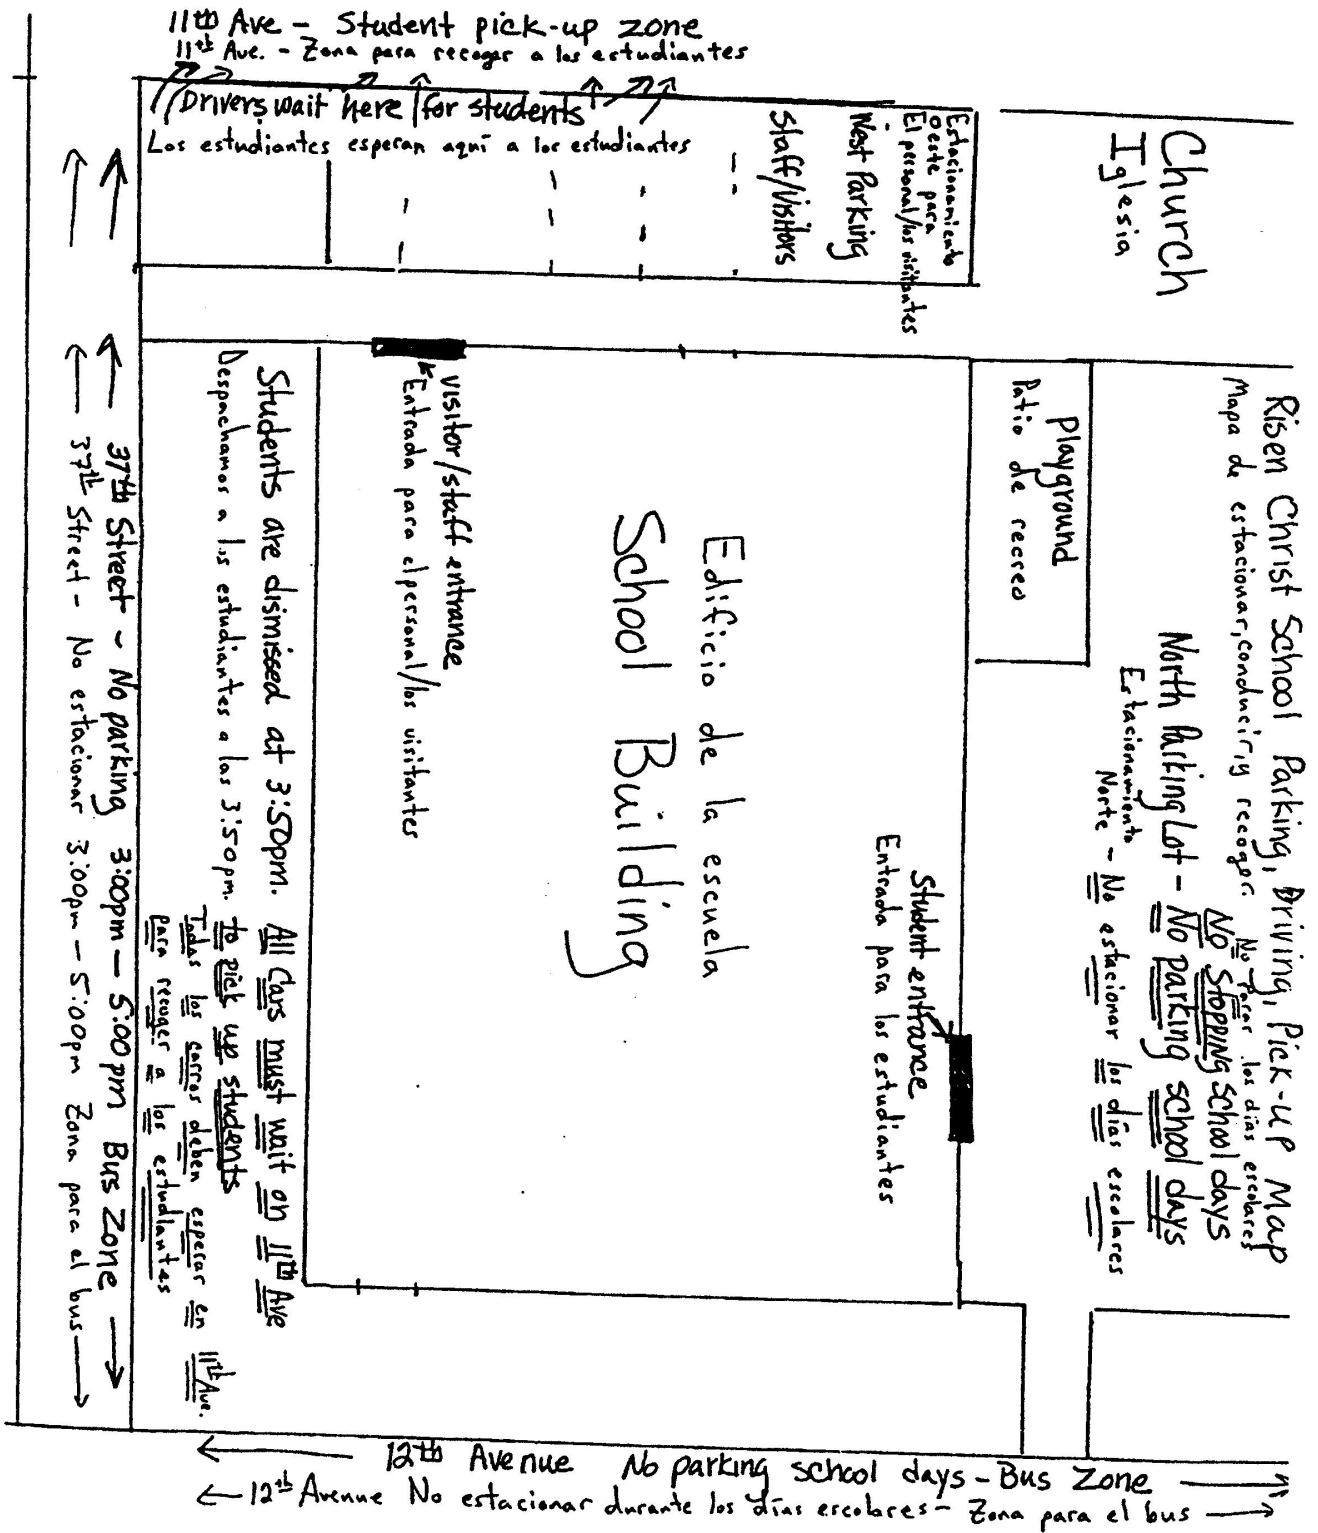 11th Ave - Student pick-up zone
11th Ave. - Zona para recoger a los estudiantes
Drivers wait here for students
Los estudiantes esperan aquí a los estudiantes
Staff/Visitors
West Parking
El personal/los visitantes
oeste para
Estacionamiento
Church
Iglesia
Risen Christ School Parking, Driving, Pick-up Map
Mapa de estacionar, conducir, y recoger.
No Parar los días escolares
No Stopping School days
North Parking Lot - No parking school days
Estacionamiento
Norte - No estacionar los días escolares
Playground
Patio de recreo
Student entrance
Entrada para los estudiantes
Edificio de la escuela
School Building
Visitor/staff entrance
Entrada para el personal/los visitantes
Students are dismissed at 3:50pm. All Cars must wait on 11th Ave
to pick up students
Despachamos a los estudiantes a las 3:50pm.
Todas los carros deben esperar en 11th Ave.
para recoger a los estudiantes
37th Street - No parking 3:00pm - 5:00pm Bus Zone
37th Street - No estacionar 3:00pm - 5:00pm Zona para el bus
12th Avenue No parking school days - Bus Zone
12th Avenue No estacionar durante los días escolares - Zona para el bus